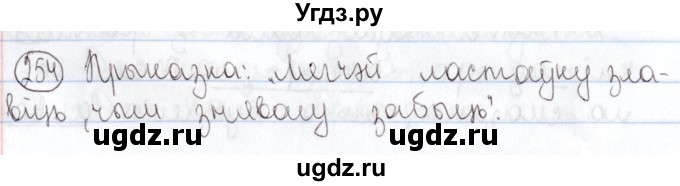 Угdз.ру
254 Прыказка: „Лягчэй ластаўку зла-
віць, чым знявагу забыць".
ugdz.ru ugdz.ru ugdz.ru